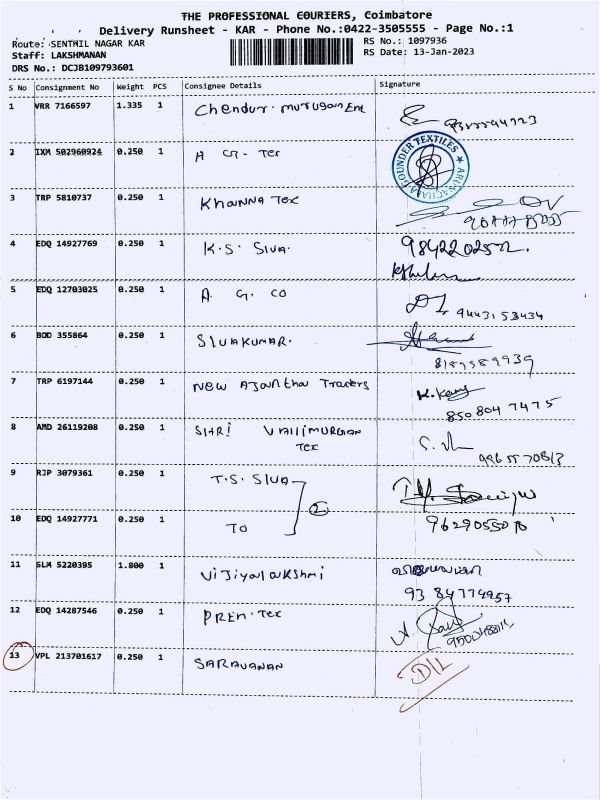 THE PROFESSIONAL COURIERS, Coimbatore
Delivery Runsheet - KAR - Phone No.:0422-3505555 - Page No.:1
Route: SENTHIL NAGAR KAR
RS No.: 1097936
Staff: LAKSHMANAN
RS Date: 13-Jan-2023
DRS No.: DCJB109793601
S No Consignment No Weight PCS Consignee Details Signature
1 VRR 7166597 1.335 1 Chendur. Murugan Ent
2 IXM 502960924 0.250 1 A G. Tex
ARUNACHALA FOUNDER TEXTILES
3 TRP 5810737 0.250 1 Khanna Tex
4 EDQ 14927769 0.250 1 K.S. SIVA. 984220252
5 EDQ 12703025 0.250 1 A G. CO
9443153434
6 BOD 355864 0.250 1 SIVAKUMAR.
8189589939
7 TRP 6197144 0.250 1 New Ajantha Traders
850804 7475
8 AMD 26119208 0.250 1 SHRI VALLIMURGAN
Tex
9 RJP 3079361 0.250 1 T.S. SIVA
2
10 EDQ 14927771 0.250 1 TO
11 SLM 5220395 1.800 1 Vijiyalakshmi
93 84774957
12 EDQ 14287546 0.250 1 PREM. Tex
13 VPL 213701617 0.250 1 SARAVANAN
D/L